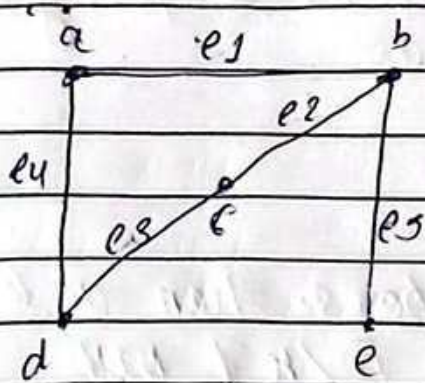 a e1 b
e2
e4
c
e3 e5
d e